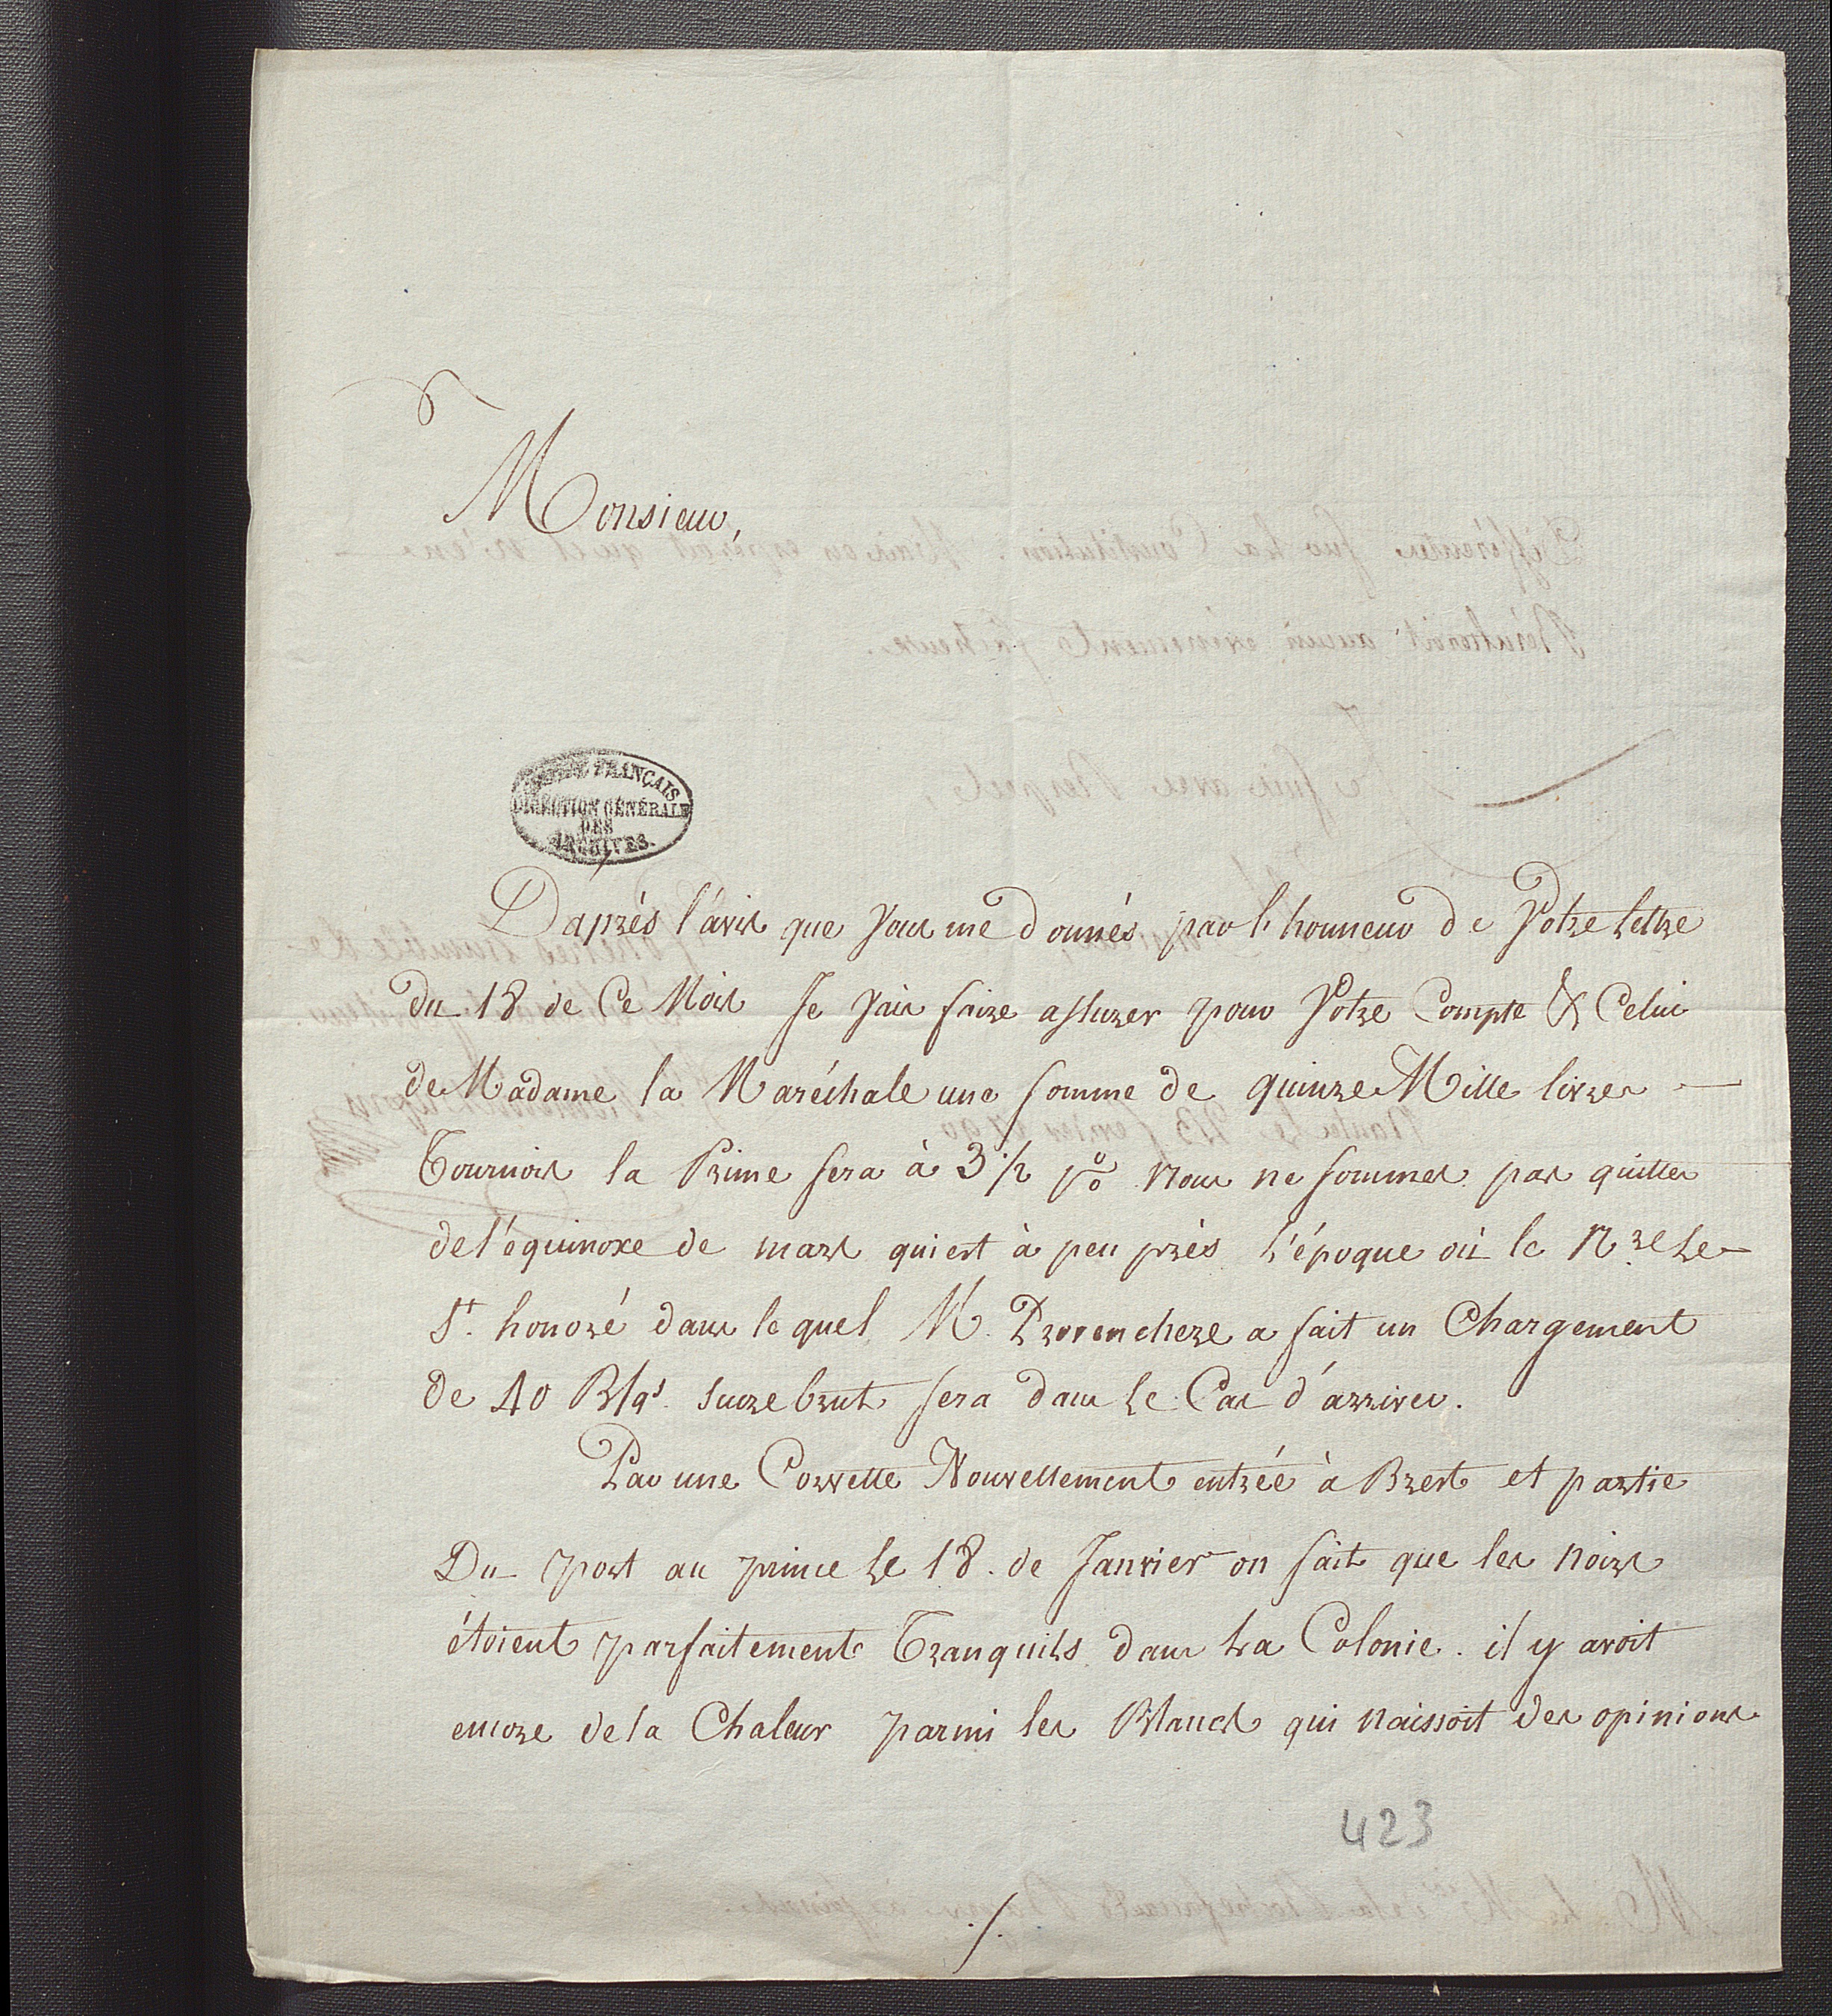 Monsieur,
FRANÇAIS
DIRECTION GÉNÉRALE
DES
ARCHIVES.
Daprés l'avis que Vous me donnés par l'honneur de Votre lettre
du 18 de Ce Mois Je Vais faire assurer pour Votre Compte & Celui
de Madame la Maréchale une somme de quinze Mille livres
Tournois la Prime sera à 3 1/2 p% Nous ne sommes pas quittes
de l'équinoxe de mars qui est à peu près L'époque où le N.re Le
St. honoré dans le quel M. Provenchere a fait un Chargement
de 40 B/qs. sucre brut sera dans Le Cas d'arriver.
Par une Corvette Nouvellement entrée à Brest et partie
Du port au prince Le 18. de Janvier on sait que les noirs
étoient parfaitement Tranquils dans La Colonie. il y avoit
encore de la Chaleur parmi les Blancs qui naissoit des opinions
423
./.